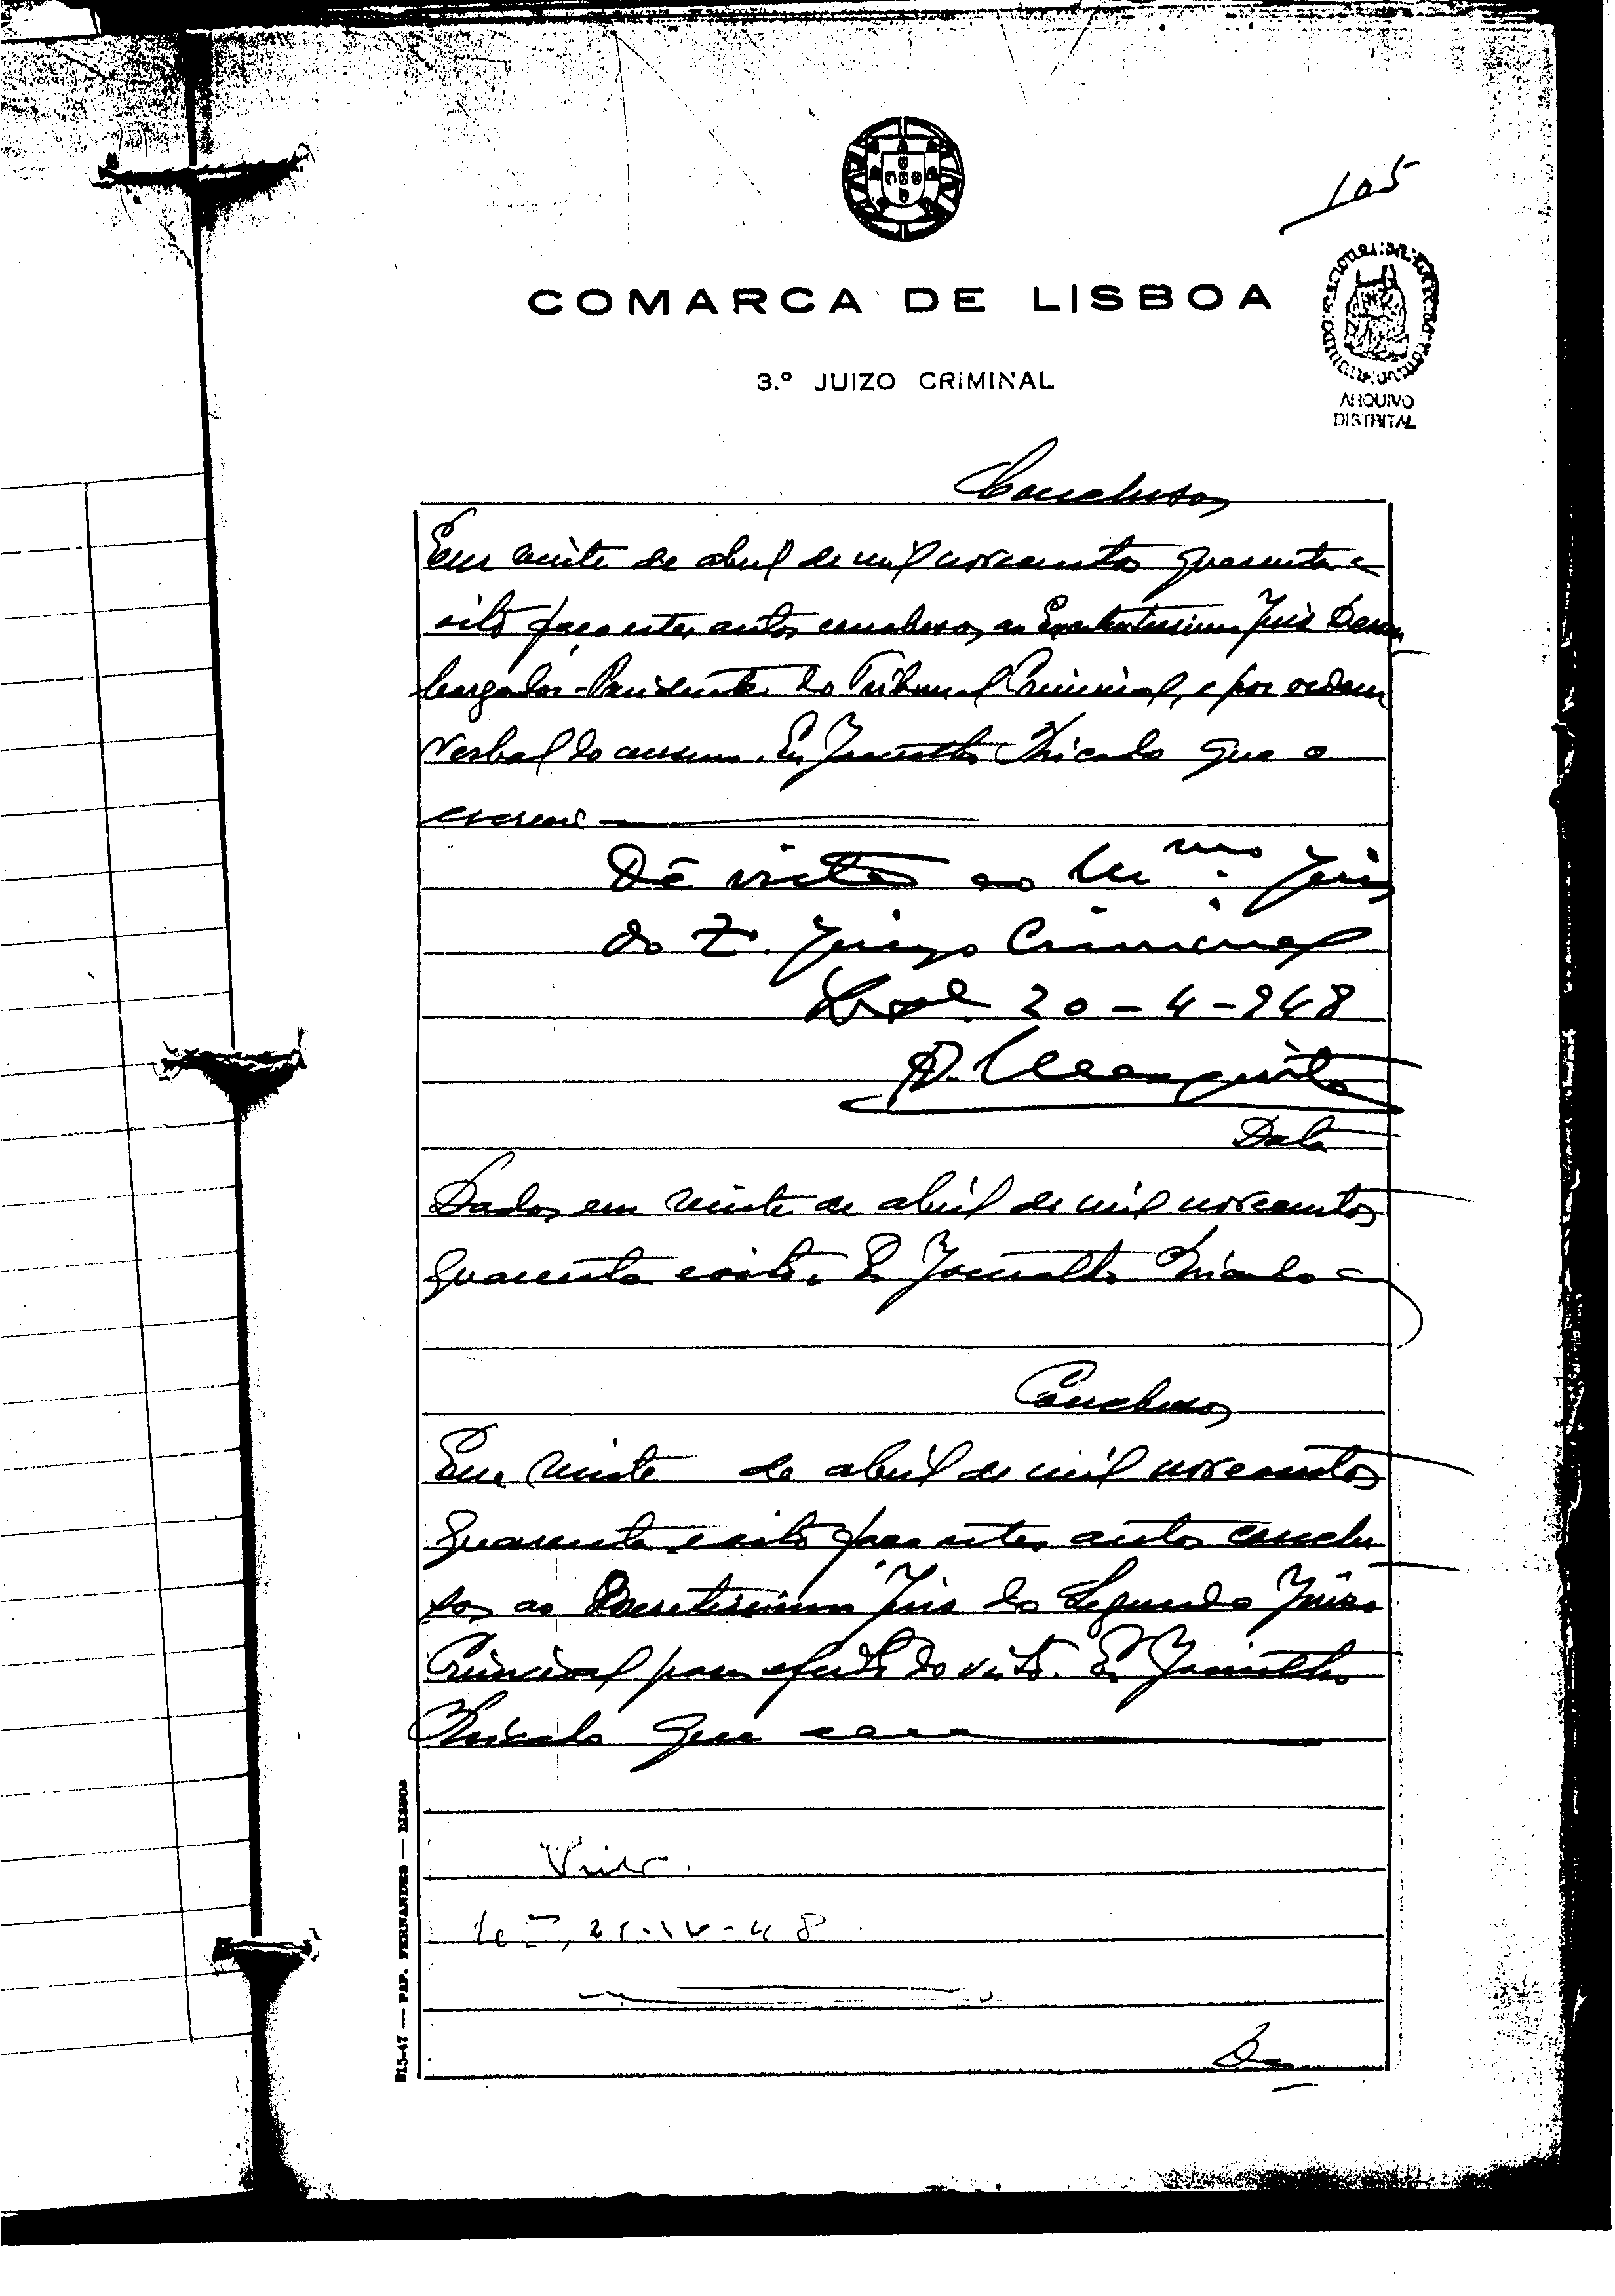 105
COMARCA DE LISBOA
3.º JUIZO CRIMINAL
ARQUIVO
DISTRITAL
Conclusos
Em vinte de abril de mil novecentos quarenta e
oito faço estes autos conclusos ao Excelentissimo Juiz Desem
bargador-Presidente do Tribunal Criminal, e por ordem
verbal do mesmo. Eu Jacintho que o
escrevi
Dê vista ao mo Juiz
do 2.º Juizo Criminal
20-4-948
A. Mesquita
Data
Dados em vinte de abril de mil novecentos
quarenta e oito. Eu Jacintho
Conclusos
Em vinte de abril de mil novecentos
quarenta e oito faço estes autos conclu
sos ao Meretissimo Juiz do Segundo Juizo
Criminal para efeito do visto. Eu Jacintho
que
Visto.
21-IV-48
915-47 — PAP. FERNANDES — LISBOA